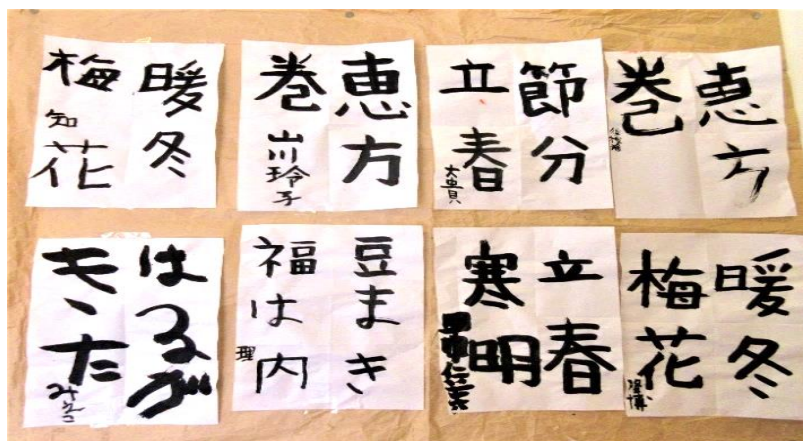 暖冬
梅花
知
恵方
巻
山川玲子
節分
立春
大貴
恵方
巻
はるが
きた
豆まき
福は内
理
立春
寒明
暖冬
梅花
隆博